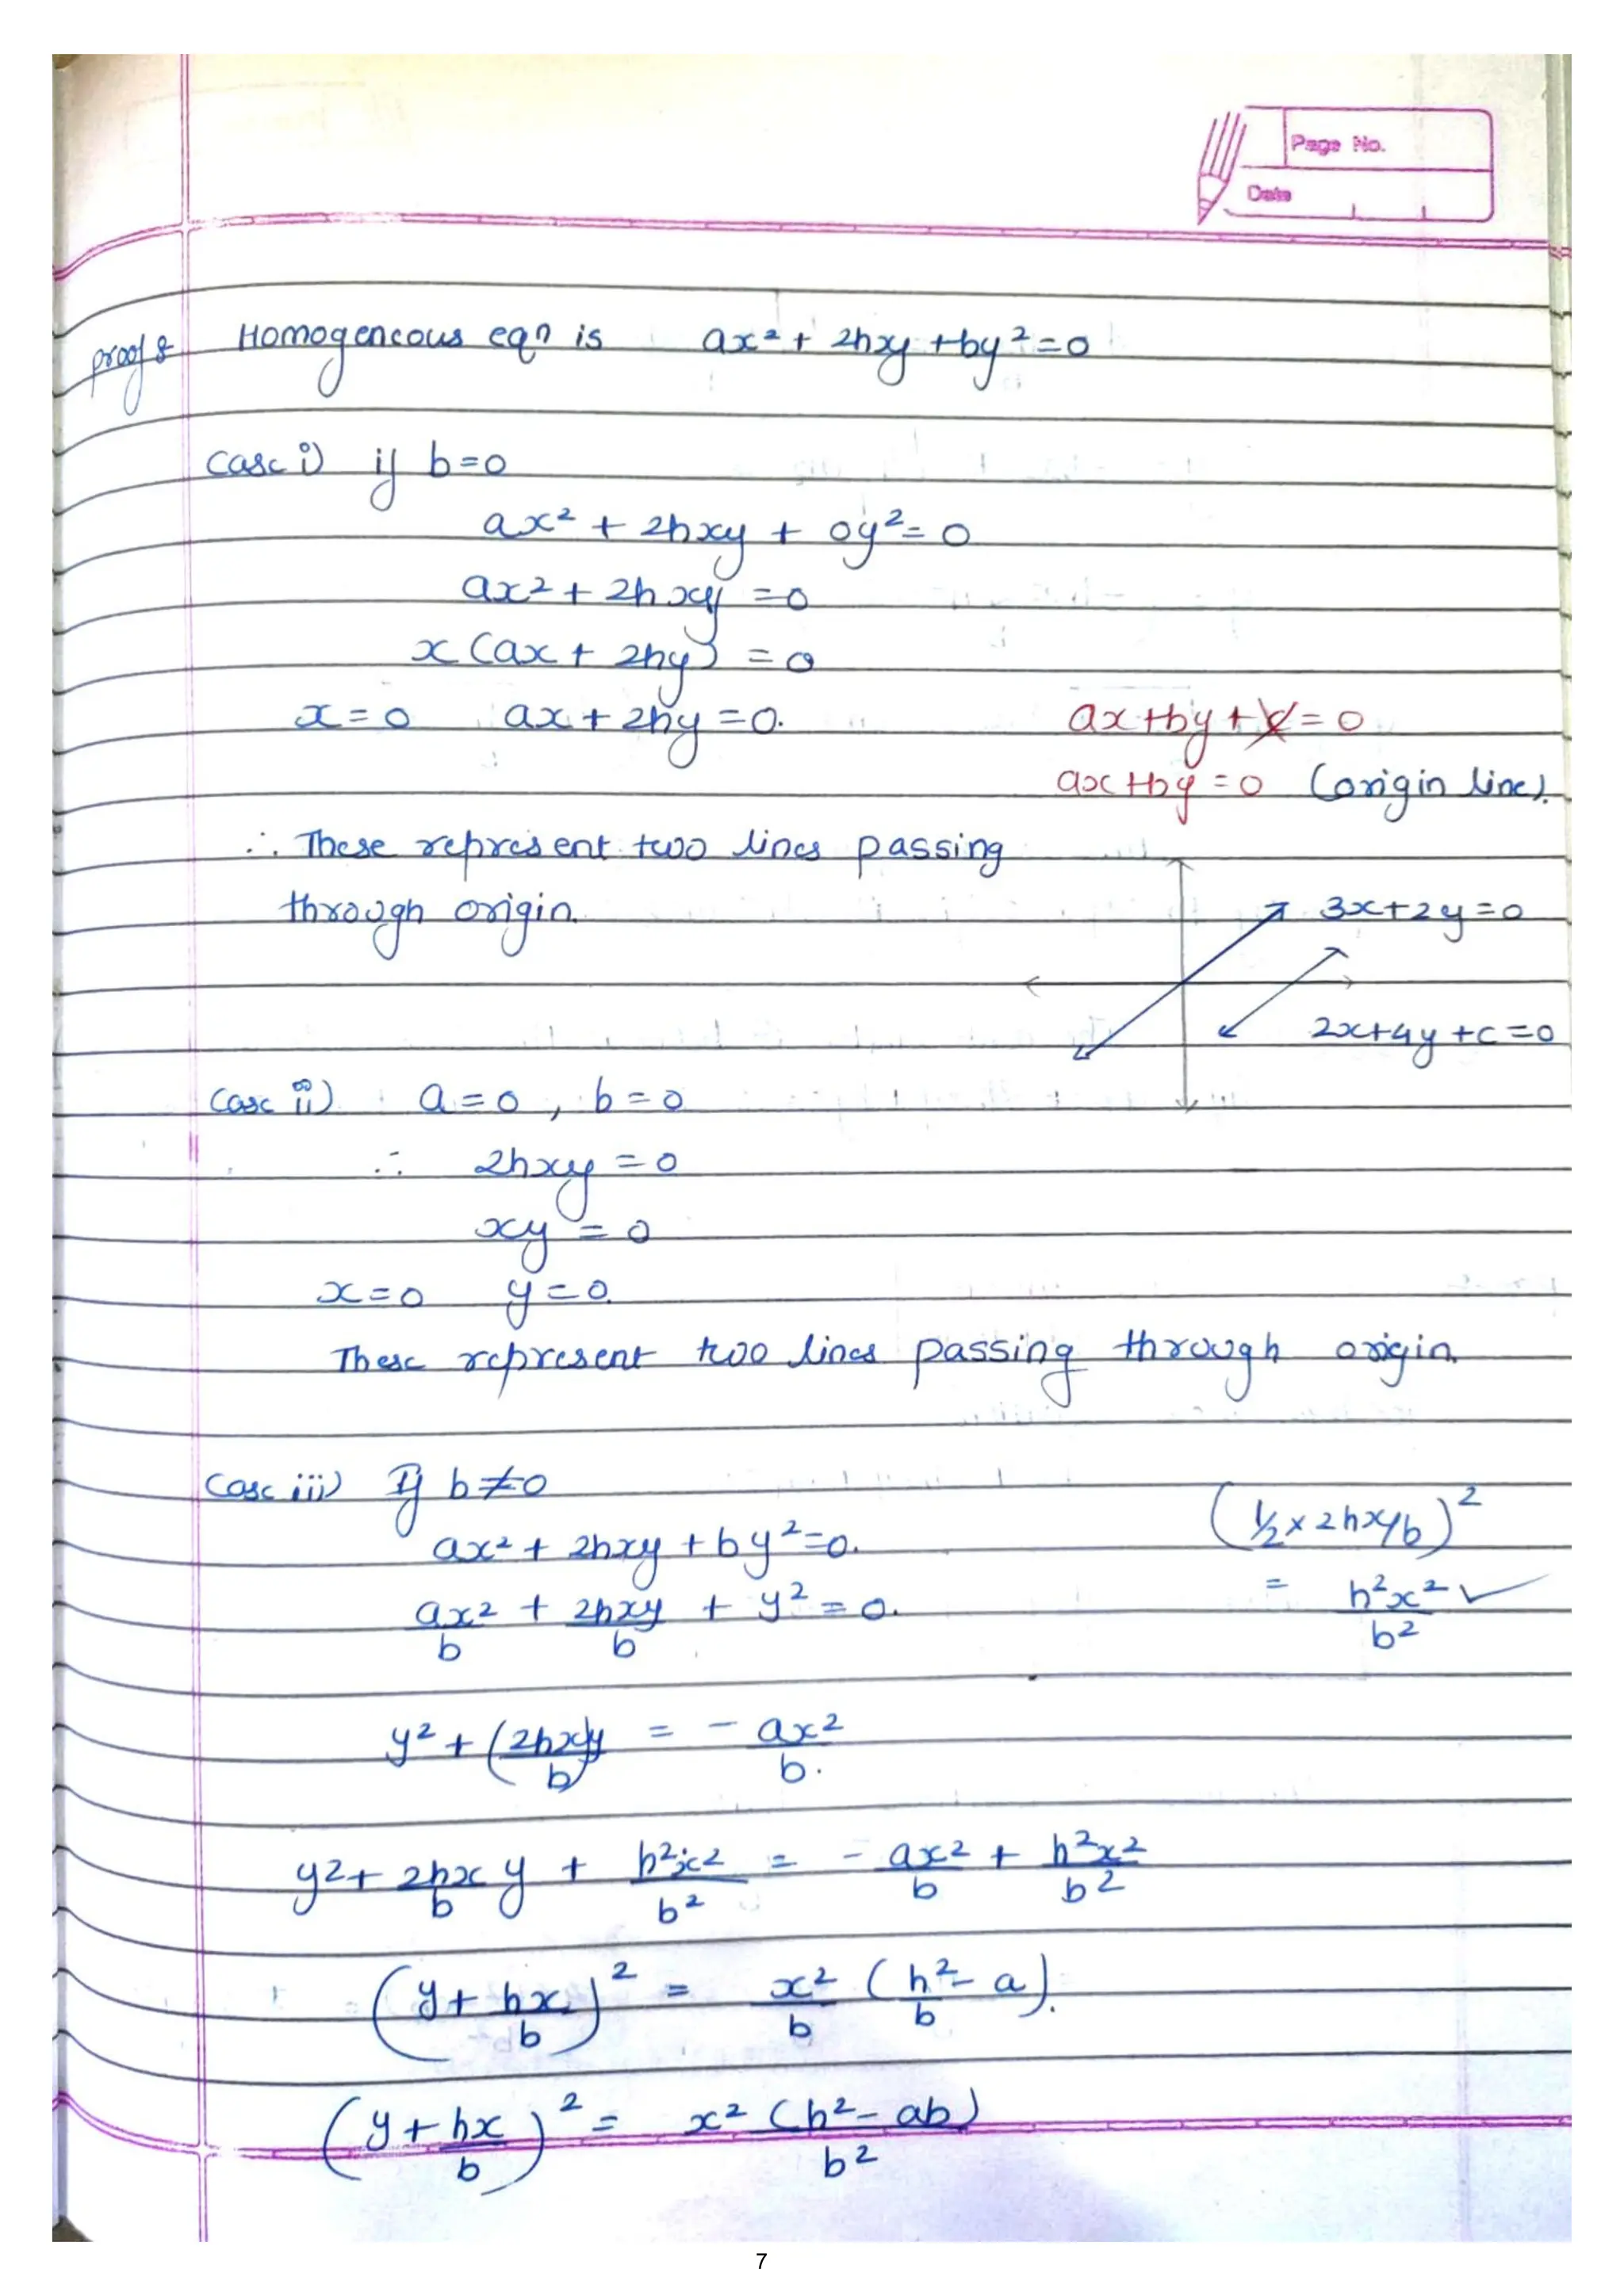 Page No.
Date
proof :- Homogeneous eqn is ax² + 2hxy + by² = 0
Case i) if b=0
ax² + 2hxy + 0y² = 0
ax² + 2hxy = 0
x (ax + 2hy) = 0
x = 0 ax + 2hy = 0.
ax + by + c = 0
ax + by = 0 (origin line).
∴ These represent two lines passing
through origin.
3x + 2y = 0
2x + 4y + c = 0
Case ii) a = 0, b = 0
∴ 2hxy = 0
xy = 0
x = 0 y = 0.
These represent two lines passing through origin.
Case iii) If b ≠ 0
ax² + 2hxy + by² = 0.
ax²/b + 2hxy/b + y² = 0.
(1/2 × 2hx/b)²
= h²x²/b² ✓
y² + (2hx/b)y = - ax²/b.
y² + 2hx/b y + h²x²/b² = - ax²/b + h²x²/b²
(y + hx/b)² = x²/b (h²/b - a).
(y + hx/b)² = x² (h² - ab)/b²
7